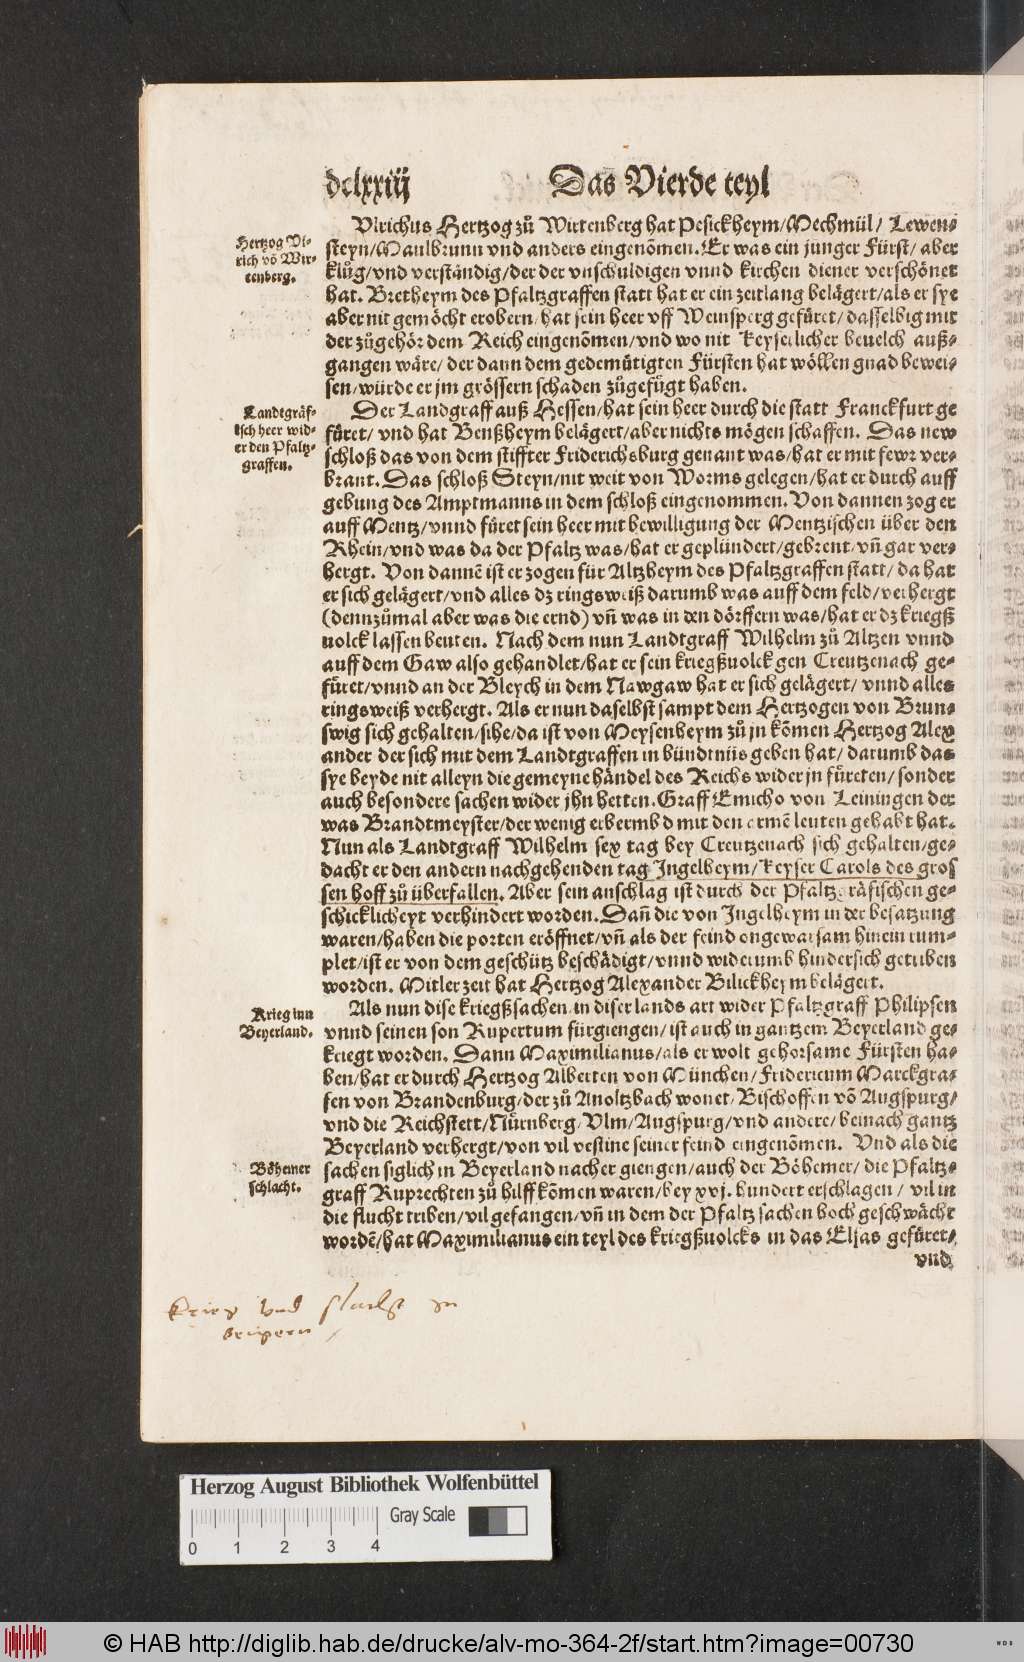 dclxxiiij
Das Vierde teyl
Vlrichus Hertzog zů Wirtenberg hat Pesickheym/Mechmül/ Lewen⸗
steyn/Maulbrunn vnd anders eingenõmen. Er was ein junger Fürst/ aber
klůg/vnd verständig/der der vnschuldigen vnnd kirchen diener verschönet
hat. Bretheym des Pfaltzgraffen statt hat er ein zeitlang belägert/als er sye
aber nit gemöcht erobern/hat sein heer vff Weinsperg gefüret/ dasselbig mit
der zůgehör dem Reich eingenõmen/vnd wo nit Keyserlicher beuelch auß⸗
gangen wäre/ der dann dem gedemütigten Fürsten hat wöllen gnad bewei⸗
sen/würde er jm grössern schaden zůgefügt haben.
Hertzog Vl⸗
rich võ Wir⸗
tenberg.
Der Landgraff auß Hessen/hat sein heer durch die statt Franckfurt ge
füret/ vnd hat Benßheym belägert/aber nichts mögen schaffen. Das new
schloß das von dem stiffter Friderichsburg genant was/hat er mit fewr ver⸗
brant. Das schloß Steyn/nit weit von Worms gelegen/hat er durch auff
gebung des Amptmanns in dem schloß eingenommen. Von dannen zog er
auff Mentz/vnnd füret sein heer mit bewilligung der Mentzischen über den
Rhein/vnd was da der Pfaltz was/hat er geplündert/gebrent/vñ gar ver⸗
hergt. Von dannẽ ist er zogen für Altzheym des Pfaltzgraffen statt/ da hat
er sich gelägert/vnd alles dz ringsweiß darumb was auff dem feld/verhergt
(dennzůmal aber was die ernd) vñ was in den dörffern was/hat er dz kriegß
uolck lassen beuten. Nach dem nun Landtgraff Wilhelm zů Altzen vnnd
auff dem Gaw also gehandlet/hat er sein kriegßuolck gen Creutzenach ge⸗
füret/vnnd an der Bleych in dem Nawgaw hat er sich gelägert/ vnnd alles
ringsweiß verhergt. Als er nun daselbst sampt dem Hertzogen von Brun⸗
swig sich gehalten/sihe/da ist von Meysenheym zů jn kõmen Hertzog Alex
ander der sich mit dem Landtgraffen in bündtniis geben hat/ darumb das
sye beyde nit alleyn die gemeyne händel des Reichs wider jn füreten/ sonder
auch besondere sachen wider jhn hetten. Graff Emicho von Leiningen der
was Brandtmeyster/der wenig erbermbd mit den armẽ leuten gehabt hat.
Nun als Landtgraff Wilhelm sex tag bey Creutzenach sich gehalten/ge⸗
dacht er den andern nachgehenden tag Ingelheym/Keyser Carols des gros
sen hoff zů überfallen. Aber sein anschlag ist durch der Pfaltzgräfischen ge⸗
schicklicheyt verhindert worden. Dañ die von Ingelheym in der besatzung
waren/haben die porten eröffnet/vñ als der feind ongewarsam hinein rum⸗
plet/ist er von dem geschütz beschädigt/vnnd widerumb hindersich getriben
worden. Mitler zeit hat Hertzog Alexander Bilickheym belägert.
Landtgräf⸗
isch heer wid⸗
er den Pfaltz⸗
graffen.
Als nun dise kriegßsachen in diser lands art wider Pfaltzgraff Philipsen
vnnd seinen son Rupertum fürgiengen/ ist auch in gantzem Beyerland ge⸗
kriegt worden. Dann Maximilianus/als er wolt gehorsame Fürsten ha⸗
ben/hat er durch Hertzog Alberten von München/Fridericum Marckgra⸗
fen von Brandenburg/der zů Anoltzbach wonet/Bischoffen võ Augspurg/
vnd die Reichstett/Nürnberg/Vlm/Augspurg/vnd andere/beinach gantz
Beyerland verhergt/von vil vestine seiner feind eingenõmen. Vnd als die
sachen siglich in Beyerland nacher giengen/auch der Böhemer/ die Pfaltz⸗
graff Ruprechten zů hilff kõmen waren/bey xvj. hundert erschlagen / vil in
die flucht triben/vil gefangen/vñ in dem der Pfaltz sachen hoch geschwächt
wordẽ/hat Maximilianus ein teyl des kriegßuolcks in das Elsas gefüret/
vnd
Krieg inn
Beyerland.
Böhemer
schlacht.
Krieg vnd slacht in
beigern
Herzog August Bibliothek Wolfenbüttel
0 1 2 3 4
Gray Scale
© HAB http://diglib.hab.de/drucke/alv-mo-364-2f/start.htm?image=00730